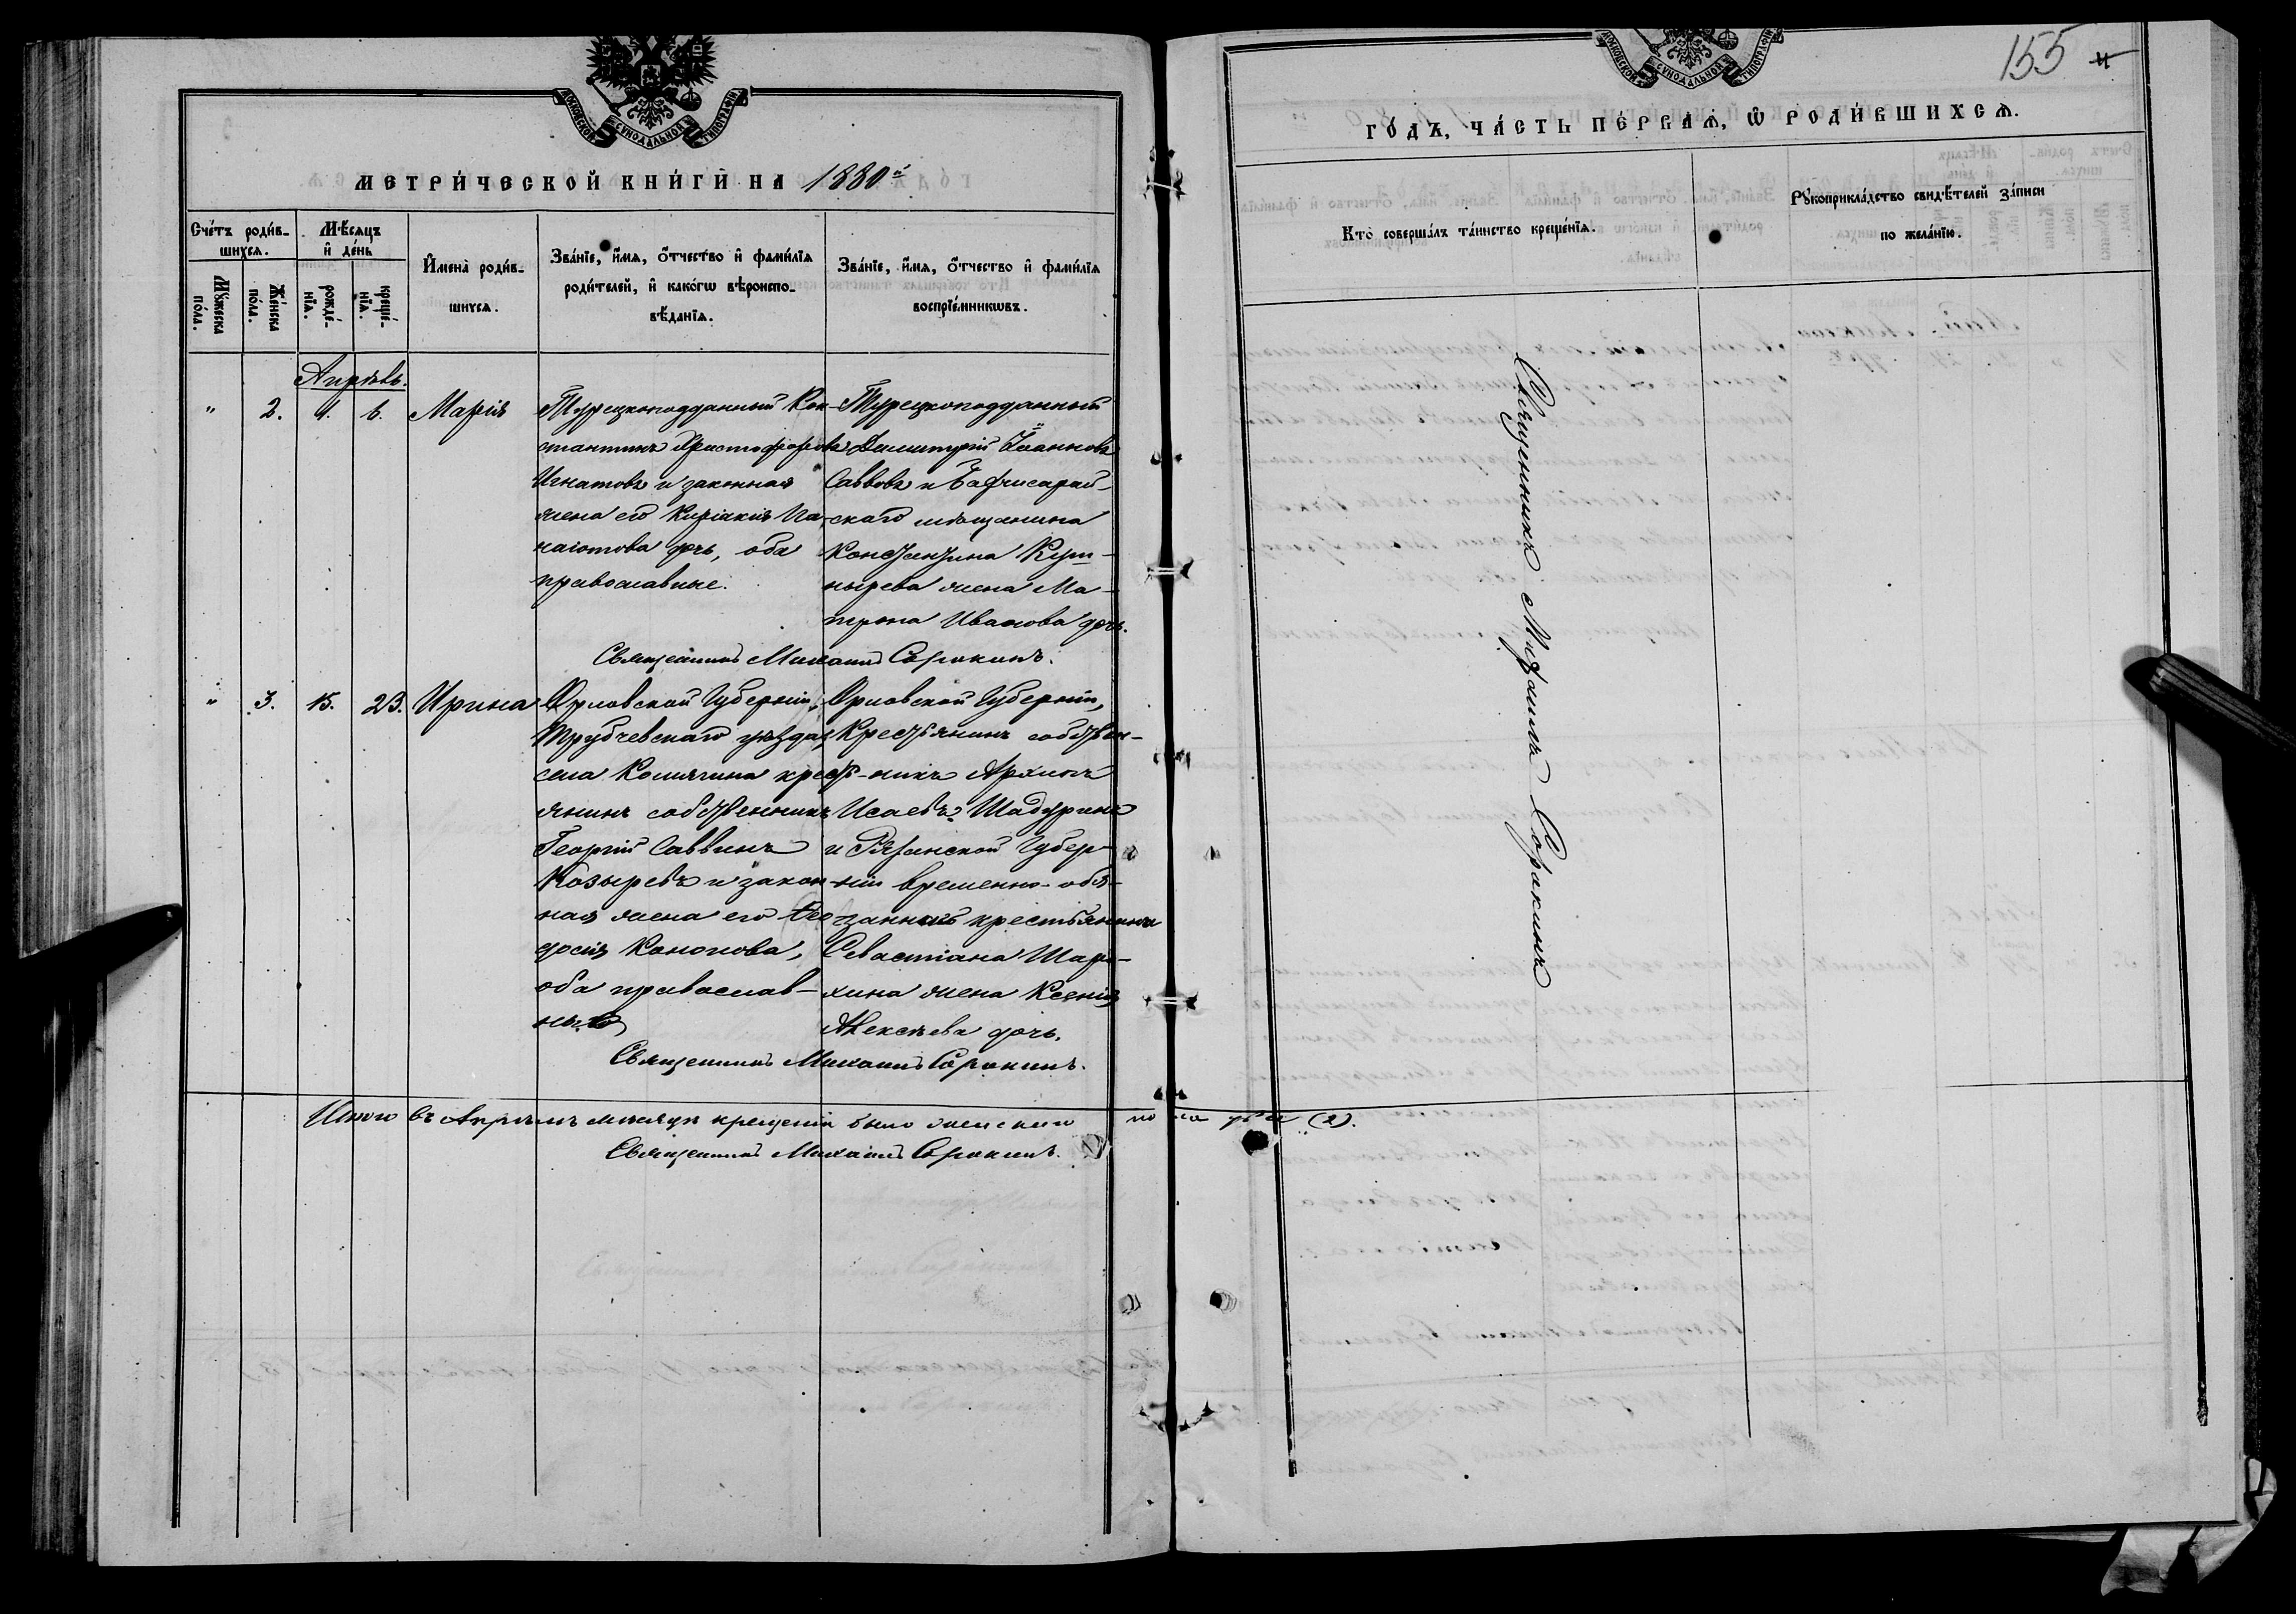 МОСКОВСКОЙ СѴНОДАЛЬНОЙ ТИПОГРАФІИ
МЕТРИ́ЧЕСКОЙ КНИ́ГИ НА 1880й
Сче́тъ роди́в-
шихся.
Мѣ́сяцъ
и҆ де́нь
Мꙋ́жеска
по́ла.
Же́нска
по́ла.
рожде́-
нїѧ.
креще́-
нїѧ.
И҆мена̀ роди́в-
шихся.
Зва́нїе, и҆́мѧ, ѻ҆́тчество и҆ фами́лїѧ
роди́телей, и҆ како́гѡ вѣроиспо-
вѣ́данїѧ.
Зва́нїе, и҆́мѧ, ѻ҆́тчество и҆ фами́лїѧ
воспрїе́мникѡвъ.
Апрѣль.
" 2. 1. 6. Марія
Турецкоподданный Кон-
стантинъ Христофоровъ
Игнатовъ и законная
жена его Киріакія Па-
наіотова дочь, оба
православные.
Турецкоподданный
Димитрій Іоанновъ
Саввовъ и Бахчисарай-
скаго мѣщанина
Константина Куш-
нырева жена Ма-
трона Иванова дочь.
Священникъ Михаилъ Сорокинъ.
" 3. 15. 23. Ирина
Орловской Губерніи,
Трубчевскаго уѣзда,
села Комягина кресть-
янинъ собственникъ
Георгій Саввинъ
Козыревъ и закон-
ная жена его Ѳео-
досія Кононова,
оба православ-
ные
Орловской Губерніи,
Крестьянинъ собствен-
никъ Архипъ
Исаевъ Шадуринъ
и Рязанской Губер-
ніи временно-обя-
заннаго крестьянина
Севастіана Шара-
хина жена Ксенія
Алексѣева дочь.
Священникъ Михаилъ Сорокинъ.
Итого въ Апрѣлѣ мѣсяцѣ крещеній было женскаго пола два (2).
Священникъ Михаилъ Сорокинъ.
155
МОСКОВСКОЙ СѴНОДАЛЬНОЙ ТИПОГРАФІИ
ГО́ДЪ, ЧА́СТЬ ПЕ́РВАѦ, Ѡ҆ РОДИ́ВШИХСѦ.
Кто̀ соверша́лъ та́инство креще́нїѧ.
Рꙋкоприкла́дство свидѣ́телей за́писи
по жела́нїю.
Священникъ Михаилъ Сорокинъ